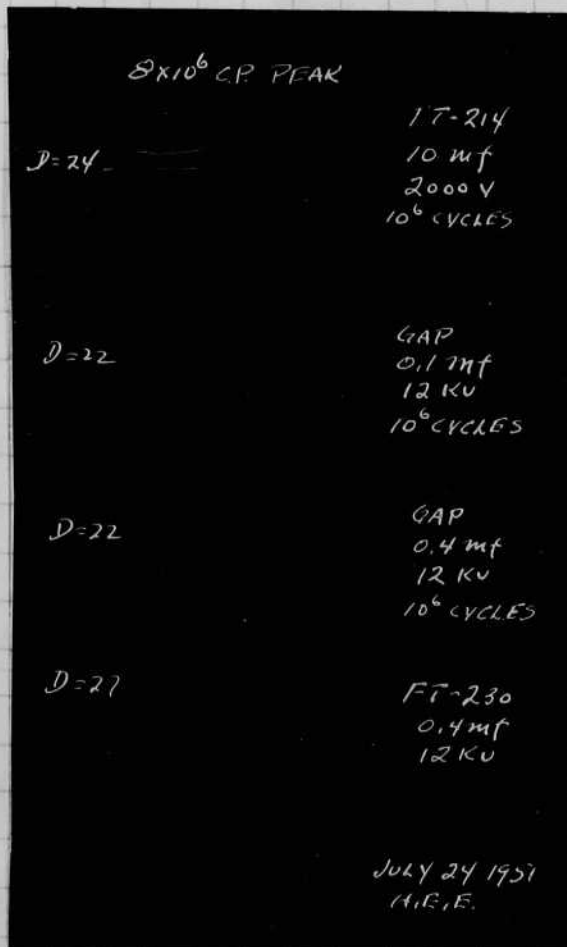 8×10⁶ C.P. PEAK
D=24
FT-214
10 mf
2000 V
10⁶ CYCLES
D=22
GAP
0.1 mf
12 KV
10⁶ CYCLES
D=22
GAP
0.4 mf
12 KV
10⁶ CYCLES
D=27
FT-230
0.4 mf
12 KV
JULY 24 1951
H.E.E.